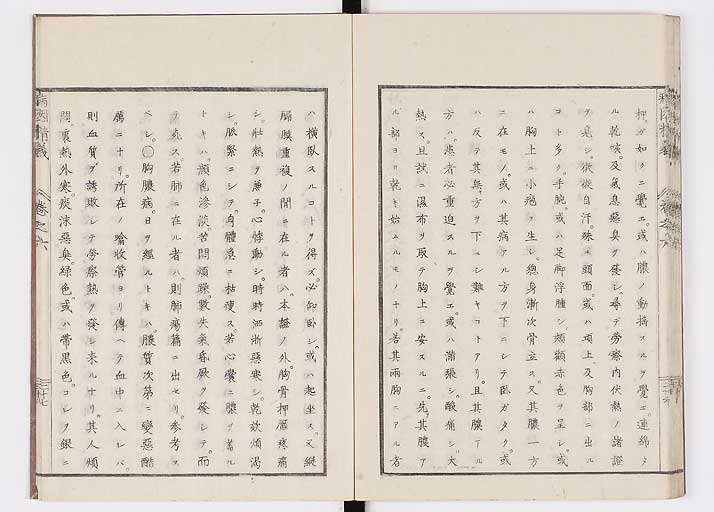 抑ガ如クニ覺エ。或ハ膿ノ動搖スルヲ覺エ。連綿タ
ル乾咳。及氣息惡臭ヲ發シ。尋デ勞瘵內伏熱ノ諸證
ヲ見シ。微微自汗。殊ニ頭面。或ハ項上及胸部ニ出ル
コト多ク。手腕。或ハ足脚浮腫シ。頰顴赤色ヲ呈シ。或
ハ胸上ニ小疱ヲ生シ。總身漸次骨立ス。又其膿一方
ニ在モノ。或ハ其病アル方ヲ下ニシテ臥ガタク。或
ハ反テ其無方ヲ下ニシ難キコトアリ。且其膿アル
方ハ。患者必重迫スルヲ覺エ。或ハ滿張シ。酸痛シ。大
熱ス。且試ニ濕布ヲ取テ胸上ニ安スルニ。先其膿ア
ル部ヨリ乾キ始ムルモノナリ。若其兩胸ニアル者
病因精義 卷之六 廿七
ハ橫臥スルコトヲ得ズ。必仰臥シ。或ハ起坐ス。又縱
膈膜重複ノ間ニ在ル者ハ。本證ノ外。胸骨押壓疼痛
シ。壯熱ヲ兼子。心悸動シ。時時洒淅惡寒シ。乾欬煩渴
シ。脈緊ニシテ身體急ニ枯瘦ス。若心囊ニ膿ヲ蓄ル
トキハ。顏色滲淡。苦悶煩躁。數失氣昏厥ヲ發シテ。而
ヲ死ス。若肺ニ在ル者ハ。則肺瘍篇ニ出セリ。參考ス
ベシ。○胸膿病。日ヲ經ルトキハ。膿質次第ニ變惡酷
厲ニナリ。所在ノ吸收管ヨリ傳ヘテ血中ニ入レバ。
則血質ヲ誘敗シテ勞瘵熱ヲ發シ來ルナリ。其人煩
悶。裏熱外寒。痰沫惡臭。綠色。或ハ帶黑色。コレヲ銀ニ